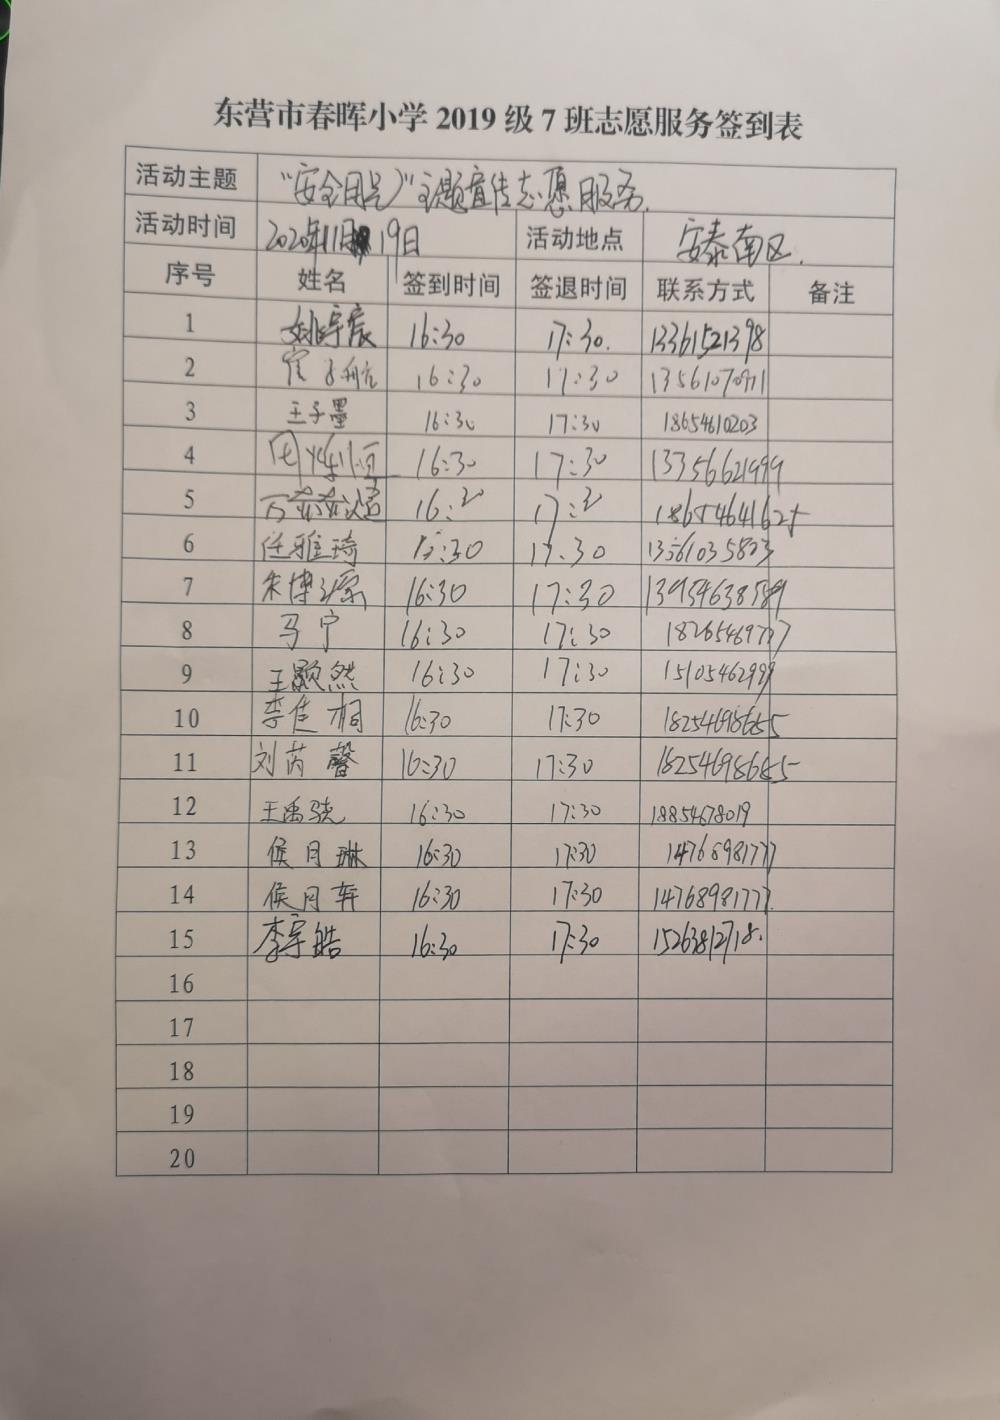 东营市春晖小学 2019 级 7 班志愿服务签到表
活动主题 "安全用电"主题宣传志愿服务.
活动时间 2020年11月19日 活动地点 安泰南区.
序号 姓名 签到时间 签退时间 联系方式 备注
1 姚宇宸 16:30 17:30. 13361521398
2 崔子航 16:30 17:30 13561070971
3 王子墨 16:30 17:30 18654610203
4 16:30 17:30 13356621999
5 16:30 17:30 18654641625
6 任雅琦 16:30 17:30 13561035823
7 朱博源 16:30 17:30 13954638589
8 马宁 16:30 17:30 18265469777
9 王颢然 16:30 17:30 15105462999
10 李佳桐 16:30 17:30 18254698655
11 刘芮馨 16:30 17:30 18254698685
12 王禹骁 16:30 17:30 18854678019
13 侯月琳 16:30 17:30 14768981777
14 侯月车 16:30 17:30 14768981777.
15 李宇皓 16:30 17:30 15263812718.
16
17
18
19
20